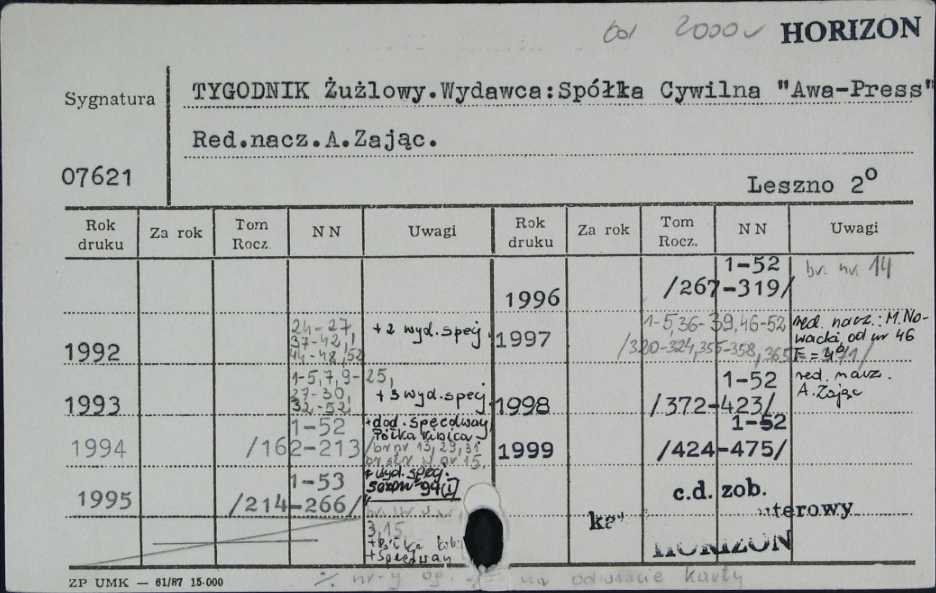 od 2000 HORIZON
Sygnatura
TYGODNIK Żużlowy.Wydawca:Spółka Cywilna "Awa-Press"
Red.nacz.A.Zając.
07621
Leszno 2º
Rok druku Za rok Tom Rocz. NN Uwagi Rok druku Za rok Tom Rocz. NN Uwagi
1996 1-52 /267-319/ br. nr. 14
1992 24-27, 37-42, 44-48, 52 + 2 wyd. spec.
1997 1-5, 36-39, 46-52 /320-324, 355-358, 365 red. nacz.: M. Nowacki, od nr 46
1993 1-5, 7, 9-25, 27-30, 32-52 + 3 wyd. spec.
1998 1-52 /372-423/ red. nacz. A. Zając
1994 1-52 /162-213/ + dod. Speedway, Półka kibica br nr 13, 29, 31
1999 1-52 /424-475/
1995 1-53 /214-266/ + wyd. spec.
c.d. zob.
terowy
HORIZON
3, 15
+ Półka
+ Speedway
ZP UMK — 61/87 15-000
na odwrocie karty